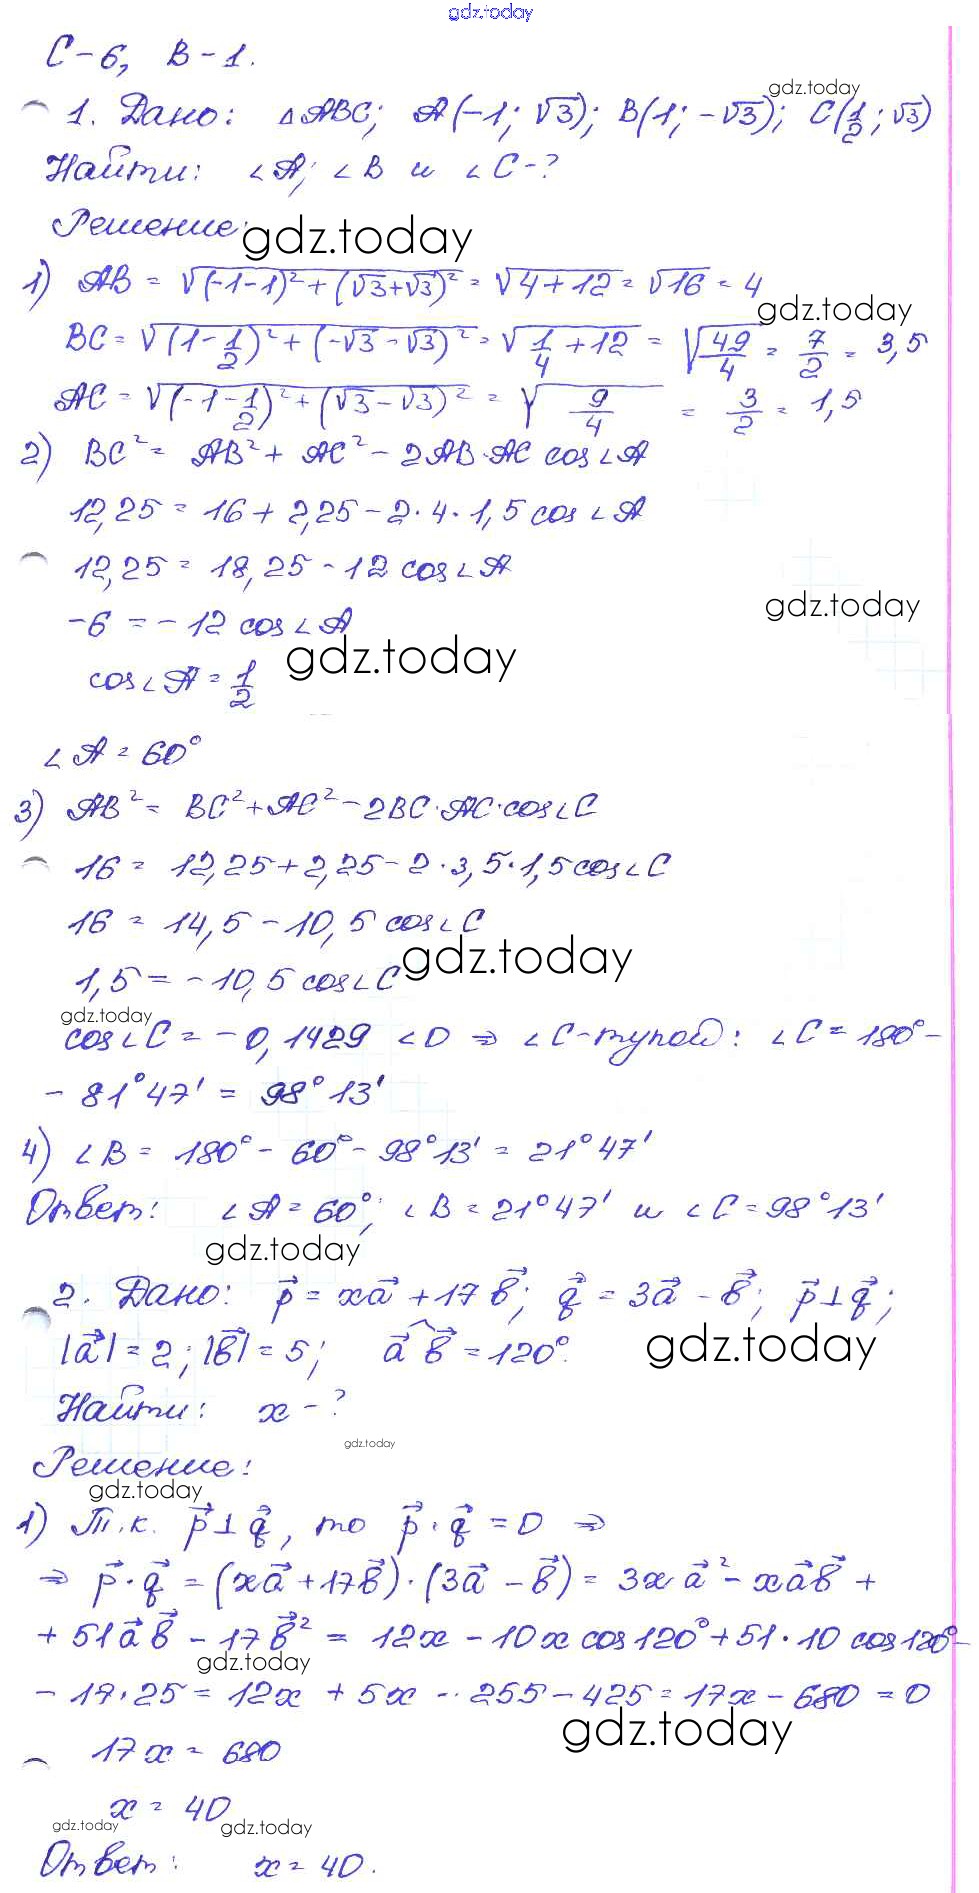 gdz.today
С-6, В-1.
gdz.today
1. Дано: △ABC; A(-1; √3); B(1; -√3); C(1/2; √3)
Найти: ∠A; ∠B и ∠C-?
Решение:
gdz.today
1) AB = √((-1-1)² + (√3+√3)²) = √(4+12) = √16 = 4
gdz.today
BC = √((1-1/2)² + (-√3-√3)²) = √(1/4+12) = √(49/4) = 7/2 = 3,5
AC = √((-1-1/2)² + (√3-√3)²) = √(9/4) = 3/2 = 1,5
2) BC² = AB² + AC² - 2AB·AC cos∠A
12,25 = 16 + 2,25 - 2·4·1,5 cos∠A
12,25 = 18,25 - 12 cos∠A
gdz.today
-6 = -12 cos∠A
gdz.today
cos∠A = 1/2
∠A = 60°
3) AB² = BC² + AC² - 2BC·AC·cos∠C
16 = 12,25 + 2,25 - 2·3,5·1,5 cos∠C
16 = 14,5 - 10,5 cos∠C
gdz.today
1,5 = -10,5 cos∠C
gdz.today
cos∠C = -0,1429 < 0 ⇒ ∠C-тупой: ∠C = 180° -
- 81°47' = 98°13'
4) ∠B = 180° - 60° - 98°13' = 21°47'
Ответ: ∠A = 60°; ∠B = 21°47' и ∠C = 98°13'
gdz.today
2. Дано: p⃗ = xa⃗ + 17b⃗; q⃗ = 3a⃗ - b⃗; p⃗⊥q⃗;
|a⃗| = 2; |b⃗| = 5; a⃗ b⃗ = 120°.
gdz.today
Найти: x-?
gdz.today
Решение:
gdz.today
1) Т.к. p⃗⊥q⃗, то p⃗·q⃗ = 0 ⇒
⇒ p⃗·q⃗ = (xa⃗ + 17b⃗)·(3a⃗ - b⃗) = 3xa⃗² - xa⃗b⃗ +
+ 51a⃗b⃗ - 17b⃗² = 12x - 10x cos120° + 51·10 cos120° -
gdz.today
- 17·25 = 12x + 5x - 255 - 425 = 17x - 680 = 0
gdz.today
17x = 680
x = 40
gdz.today
gdz.today
Ответ: x = 40.